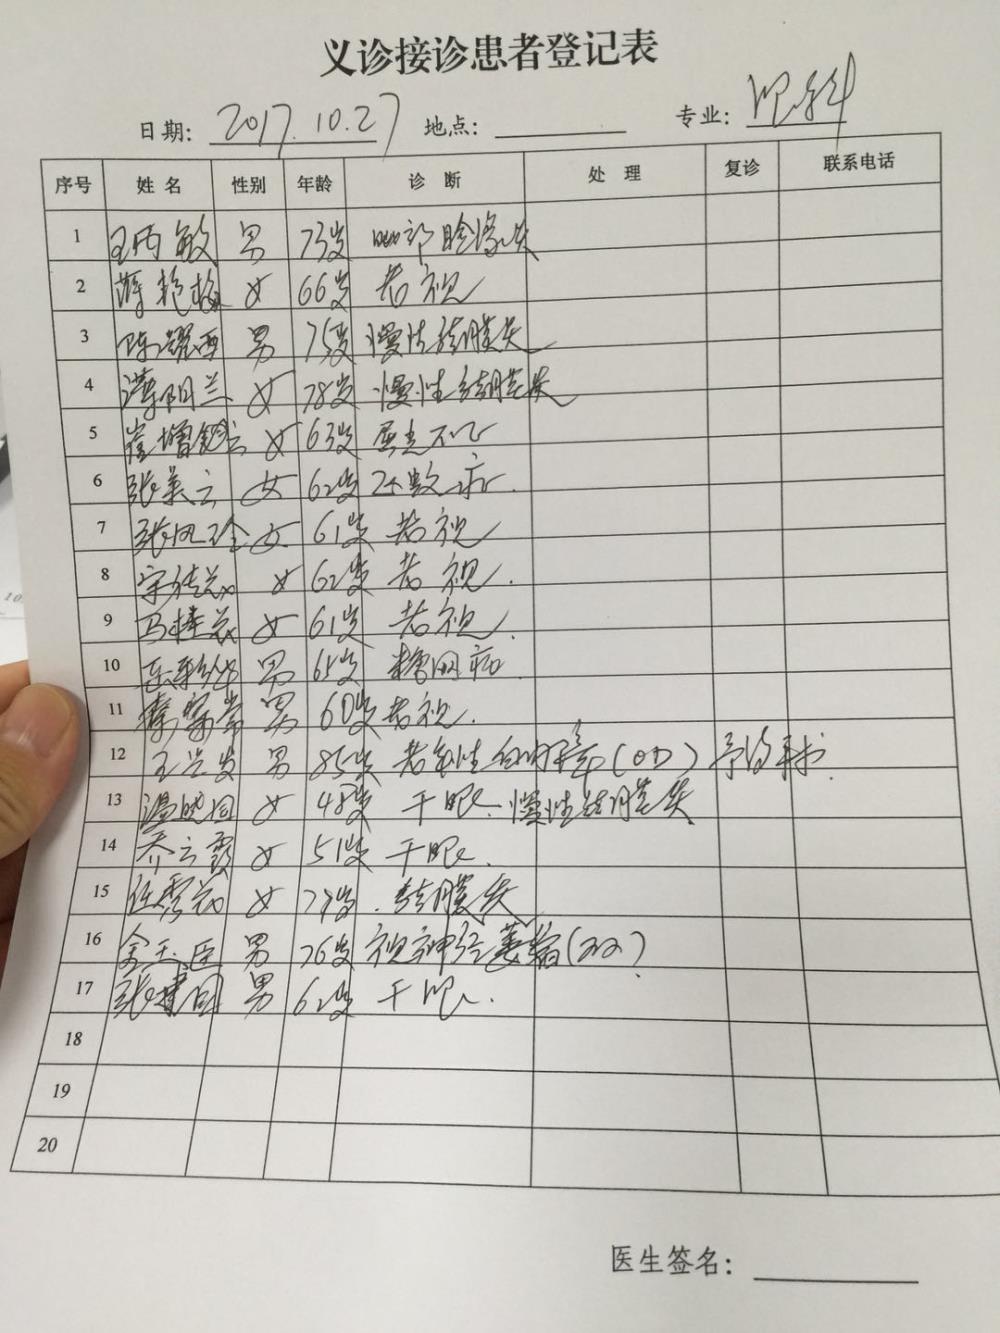 义诊接诊患者登记表
日期: 2017.10.27 地点: 专业: 眼科
序号 姓名 性别 年龄 诊断 处理 复诊 联系电话
1 王丙敏 男 73岁
2 薛艳梅 女 66岁 老视
3 陈耀西 男 75岁 慢性结膜炎
4 薄阳兰 女 78岁 慢性结膜炎
5 崔增 女 63岁 屈光不正
6 张美云 女 62岁
7 张凤玲 女 61岁 老视
8 女 62岁 老视.
9 马桂花 女 61岁 老视.
10 男 65岁 糖网病
11 秦 常 男 60岁 老视.
12 王兰发 男 85岁 老年性白内障(OD) 手术
13 温 女 48岁 干眼. 慢性结膜炎
14 乔云霞 女 51岁 干眼.
15 任秀花 女 79岁. 结膜炎
16 金玉臣 男 76岁 视神经萎缩(双?)
17 张建国 男 62岁 干眼.
18
19
20
医生签名: